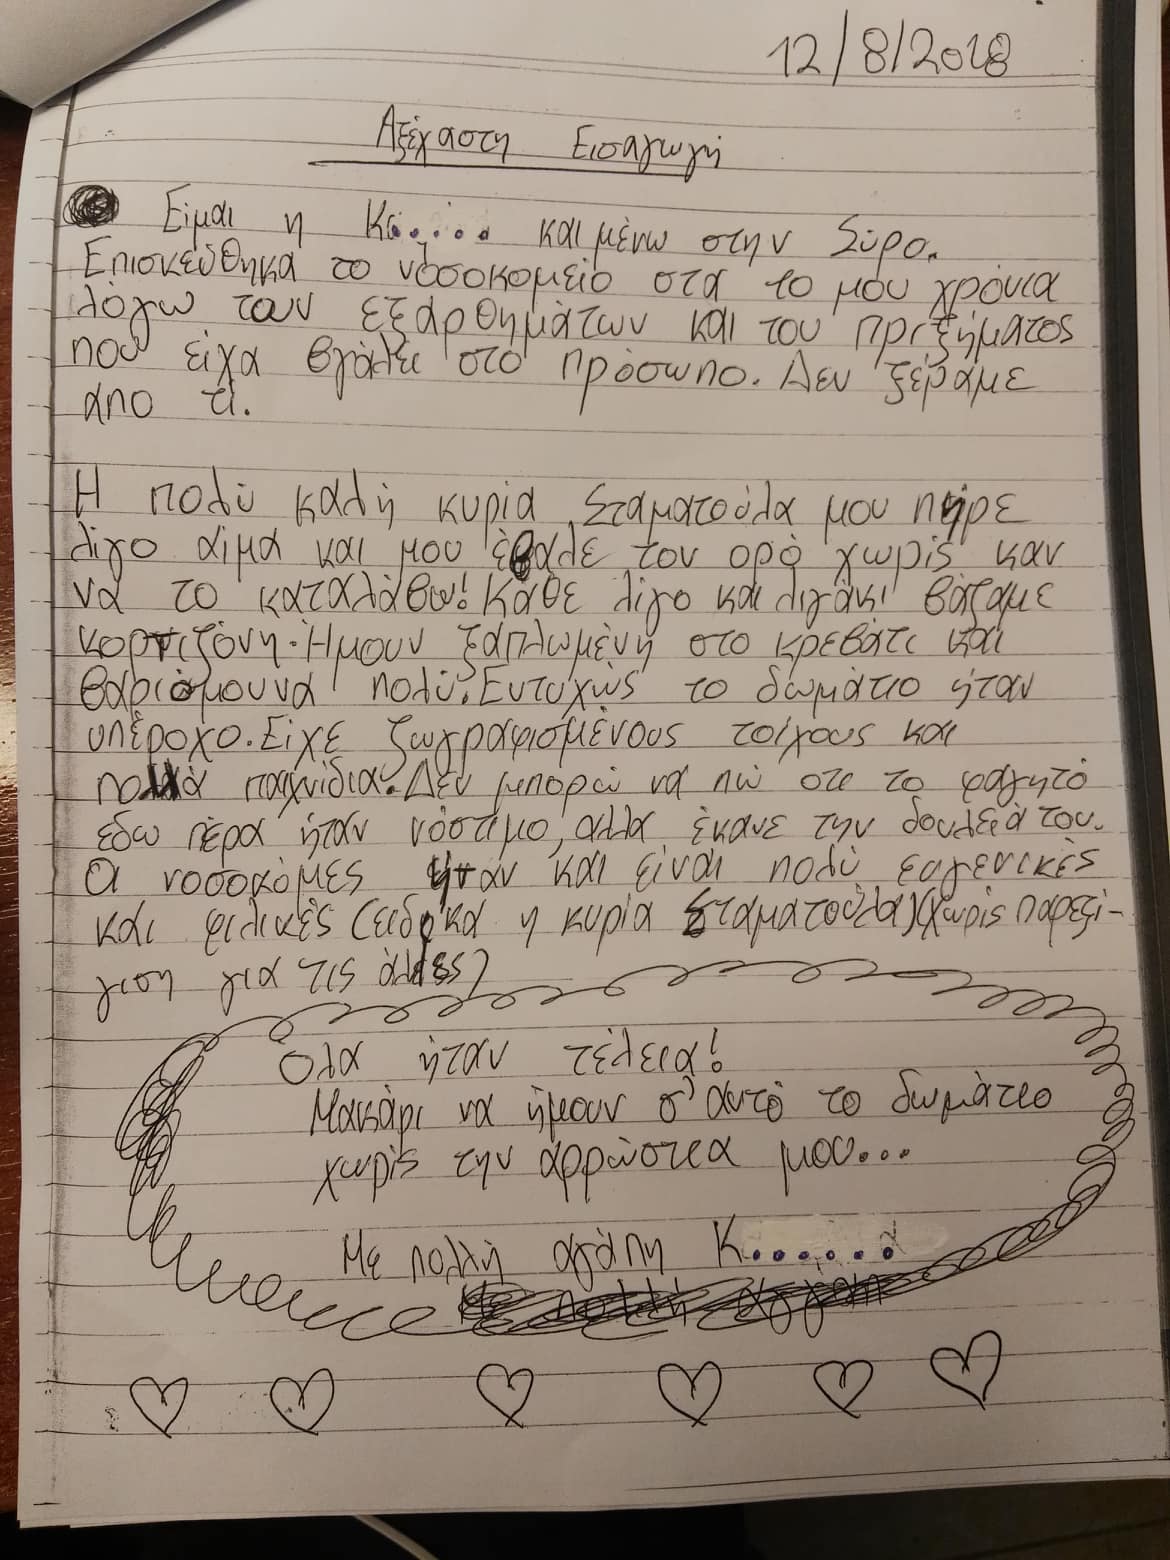 12/8/2018
Αξέχαστη Εισαγωγή
Είμαι η Κ...... και μένω στην Σύρο.
Επισκεύθηκα το νοσοκομείο στα 10 μου χρόνια
λόγω των εξαρθημάτων και του πριξήματος
που είχα βγάλει στο πρόσωπο. Δεν ξέραμε
άπο τί.
Η πολύ καλή κυρία Σταματούλα μου πήρε
λίγο αίμα και μου έβαλε τον ορό χωρίς καν
να το καταλάβω! Κάθε λίγο και λιγάκι βάζαμε
κορτιζόνη. Ήμουν ξαπλωμένη στο κρεβάτι και
βαριόμουνα πολύ. Ευτυχώς το δωμάτιο ήταν
υπέροχο. Είχε ζωγραφισμένους τοίχους και
πολλά παιχνίδια. Δεν μπορώ να πώ οτι το φαγητό
εδω πέρα ήταν νόστιμο, αλλα έκανε την δουλειά του.
Οι νοσοκόμες ήταν και είναι πολύ ευγενικές
και φιλικές (ειδικα η κυρία Σταματούλα) (χωρίς παρεξί-
γιση για τις άλλες)
Όλα ήταν τέλεια!
Μακάρι να ήμουν σ'αυτό το δωμάτιο
χωρίς την αρρώστεια μου...
Με πολλή αγάπη Κ......